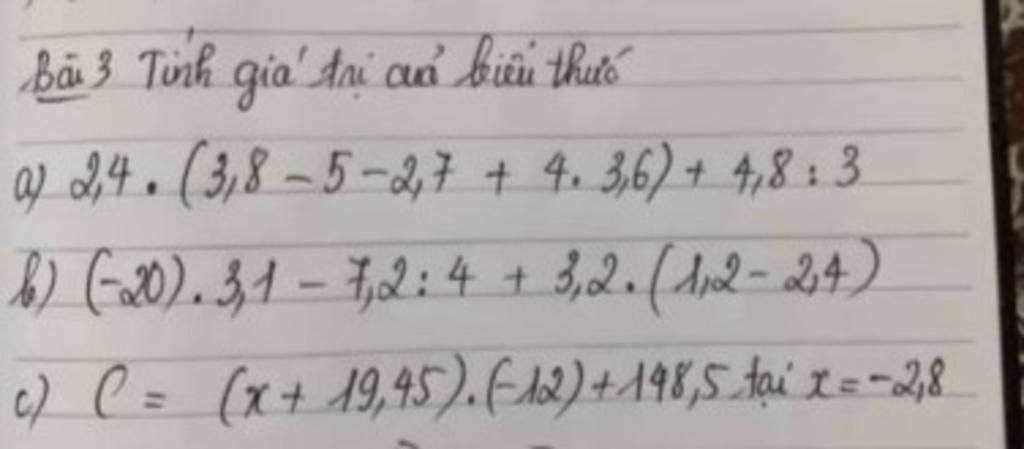 Bài 3 Tính giá trị của biểu thức
a) 2,4 . (3,8 - 5 - 2,7 + 4 . 3,6) + 4,8 : 3
b) (-20) . 3,1 - 7,2 : 4 + 3,2 . (1,2 - 2,4)
c) C = (x + 19,45) . (-12) + 148,5 tại x = -2,8